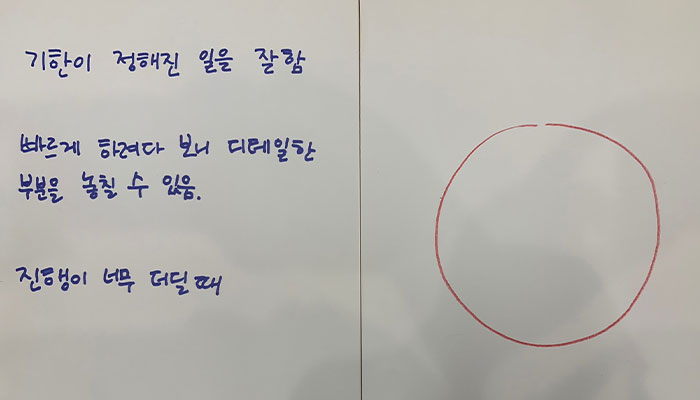 기한이 정해진 일을 잘함
빠르게 하려다 보니 디테일한
부분을 놓칠 수 있음.
진행이 너무 더딜 때